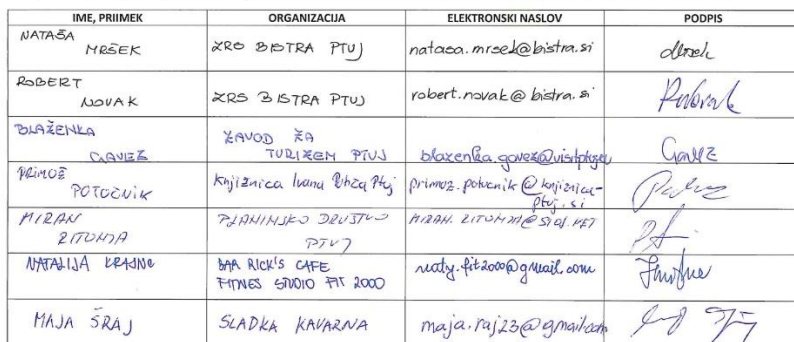 IME, PRIIMEK ORGANIZACIJA ELEKTRONSKI NASLOV PODPIS
NATAŠA
MRŠEK ZRS BISTRA PTUJ natasa.mrsek@bistra.si
ROBERT
NOVAK ZRS BISTRA PTUJ robert.novak@bistra.si
BLAŽENKA ZAVOD ZA
GAVEZ TURIZEM PTUJ blazenka.gavez@visitptuj.eu Gavez
PRIMOŽ
POTOČNIK Knjižnica Ivana Potrča Ptuj primoz.potocnik@knjiznica-
ptuj.si
MIRAN PLANINSKO DRUŠTVO
PTUJ
NATALIJA BAR RICK'S CAFE naty.fit2000@gmail.com
FITNES STUDIO FIT 2000
MAJA ŠRAJ SLADKA KAVARNA maja.raj23@gmail.com